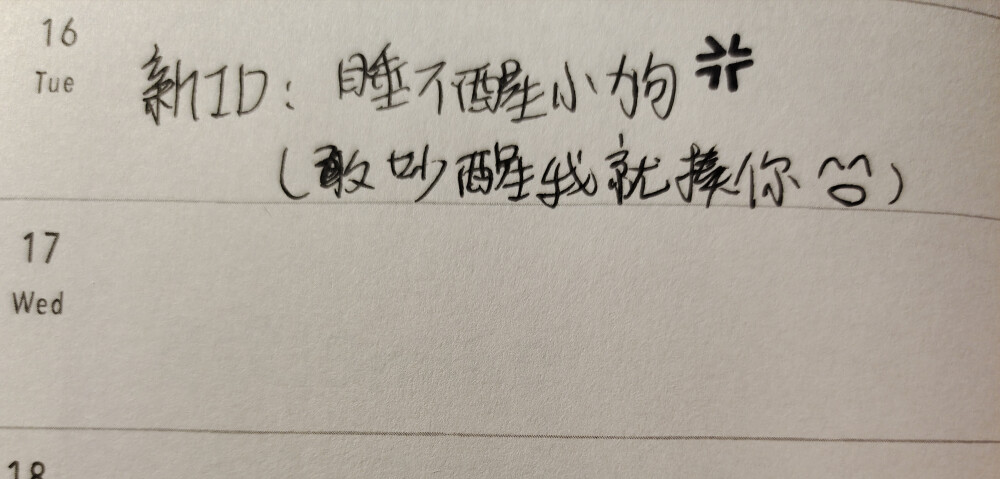 16
Tue
新ID：睡不醒小狗
（敢吵醒我就揍你）
17
Wed
18